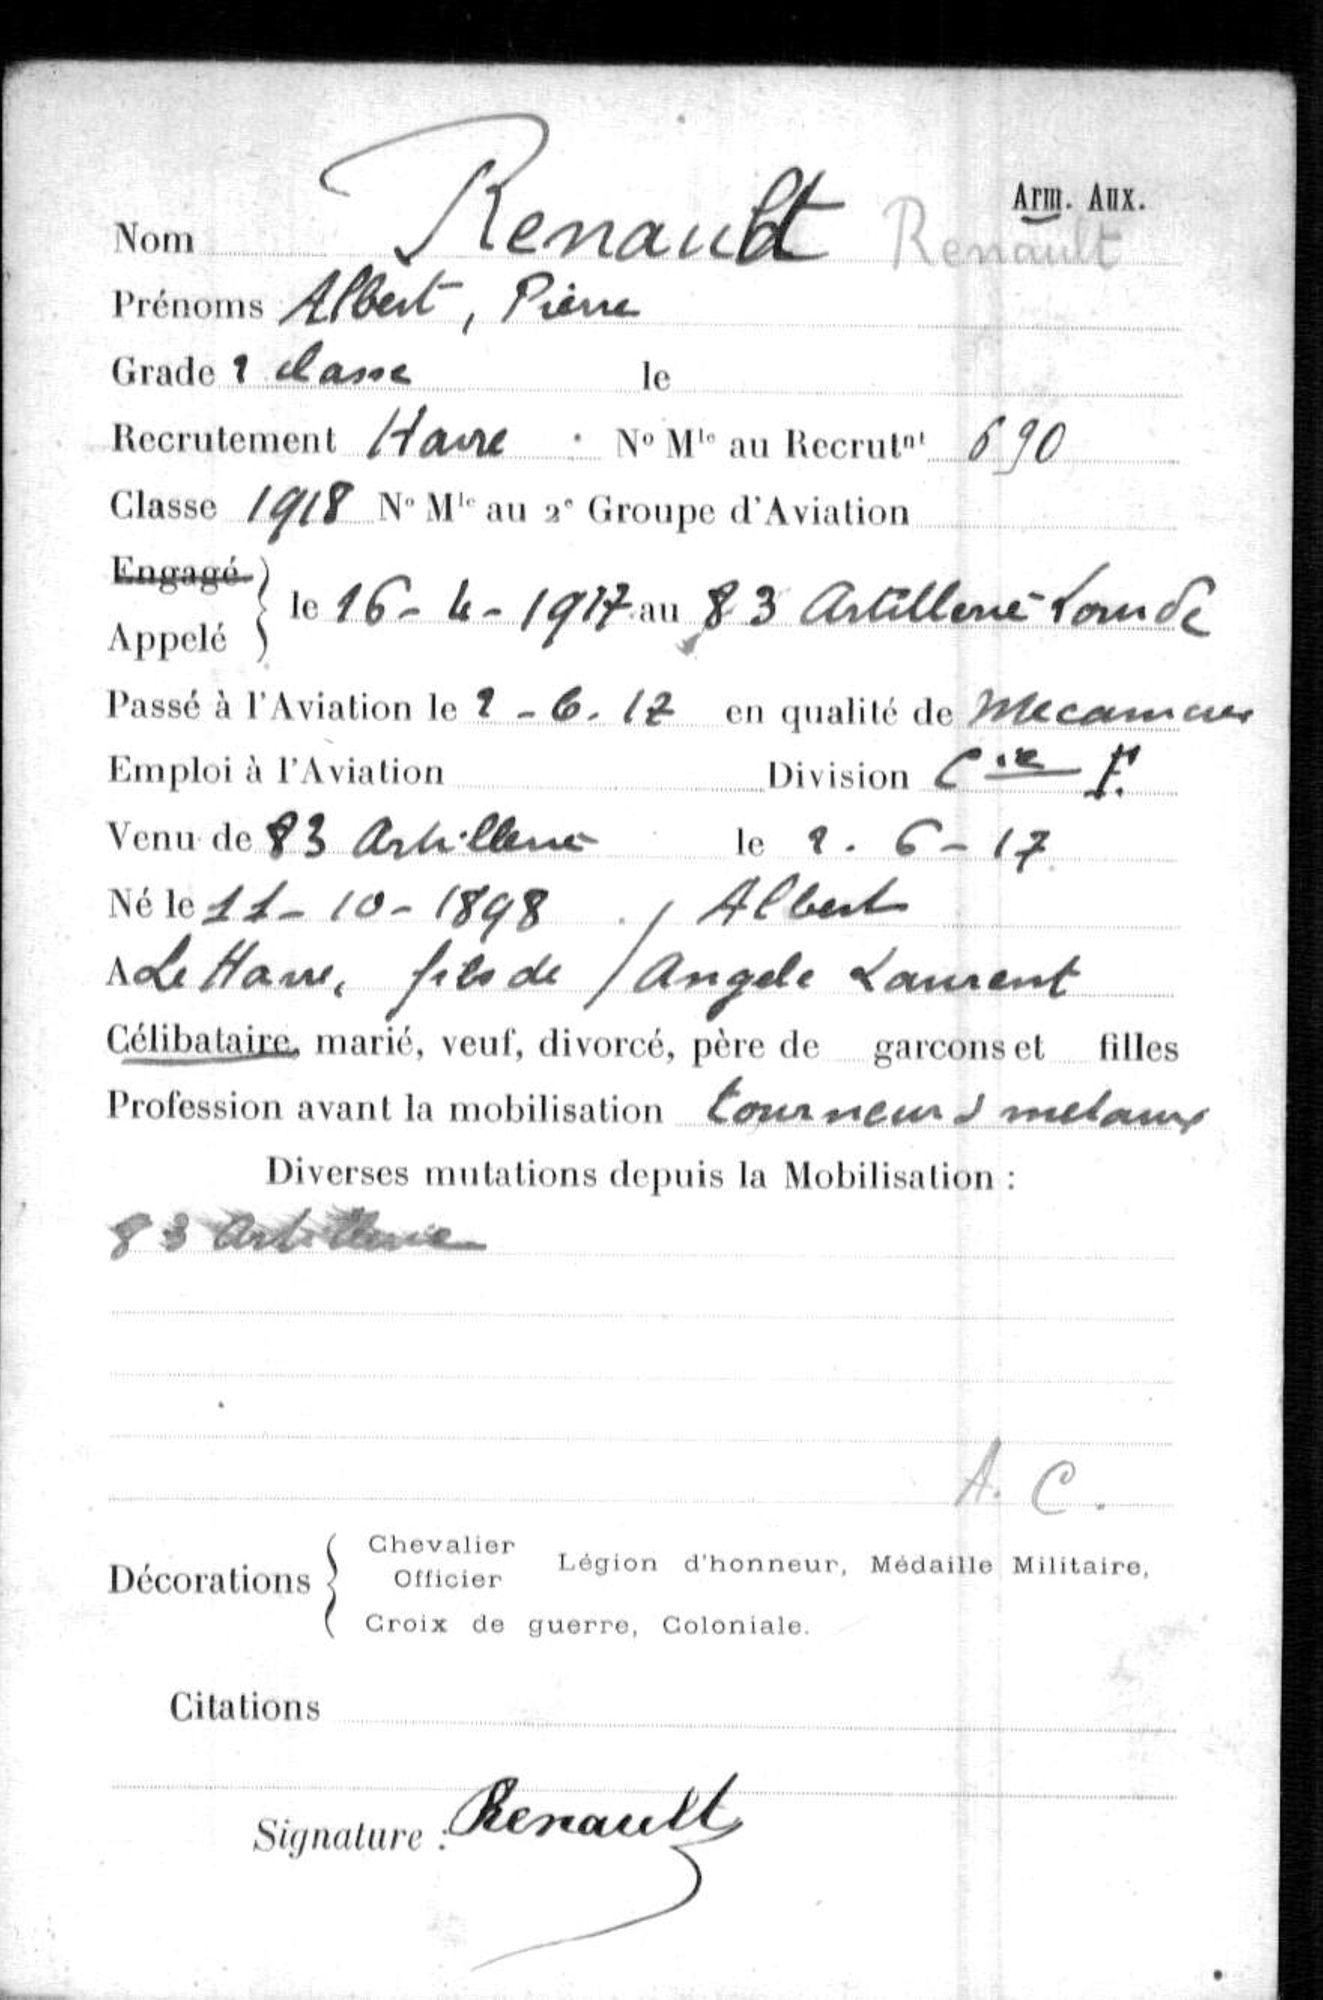 Arm. Aux.
Nom Renault Renault
Prénoms Albert, Pierre
Grade 2 classe le
Recrutement Havre N° Mle au Recrutnt 690
Classe 1918 N° Mle au 2e Groupe d'Aviation
Engagé
Appelé } le 16-4-1917 au 83 Artillerie Lourde
Passé à l'Aviation le 2-6-17 en qualité de Mecanicien
Emploi à l'Aviation Division Cie
Venu de 83 Artillerie le 2.6-17
Né le 11-10-1898 / Albert
A Le Havre, fils de / Angele Laurent
Célibataire, marié, veuf, divorcé, père de garcons et filles
Profession avant la mobilisation tourneur s metaux
Diverses mutations depuis la Mobilisation :
83 Artillerie
A. C.
Décorations { Chevalier
Officier Légion d'honneur, Médaille Militaire,
Croix de guerre, Coloniale.
Citations
Signature : Renault